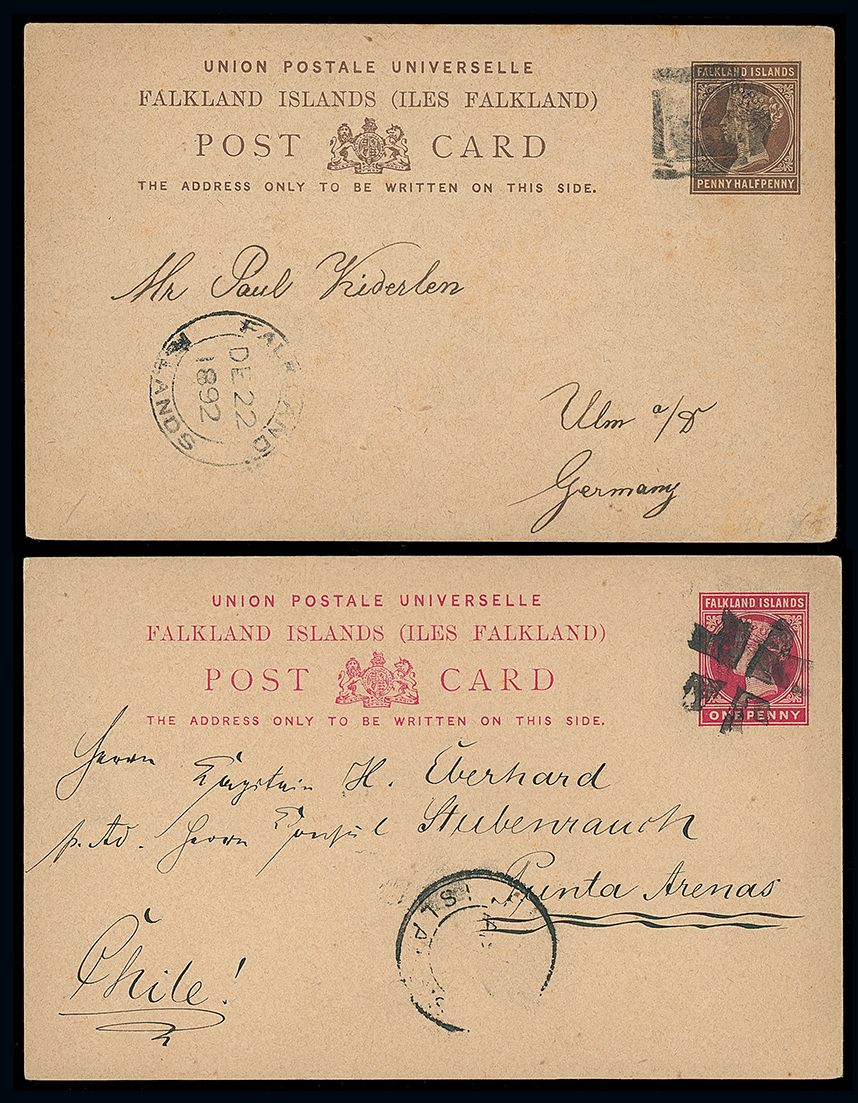 UNION POSTALE UNIVERSELLE
FALKLAND ISLANDS (ILES FALKLAND)
POST CARD
THE ADDRESS ONLY TO BE WRITTEN ON THIS SIDE.
FALKLAND ISLANDS
PENNY HALFPENNY
Mr Paul Kiderlen
FALKLAND ISLANDS
DE 22
1892
Ulm a/D
Germany
UNION POSTALE UNIVERSELLE
FALKLAND ISLANDS (ILES FALKLAND)
POST CARD
THE ADDRESS ONLY TO BE WRITTEN ON THIS SIDE.
FALKLAND ISLANDS
ONE PENNY
Herrn Kapitain H. Eberhard
p. Ad. Herrn Konsul Stubenrauch
Punta Arenas
Chile!